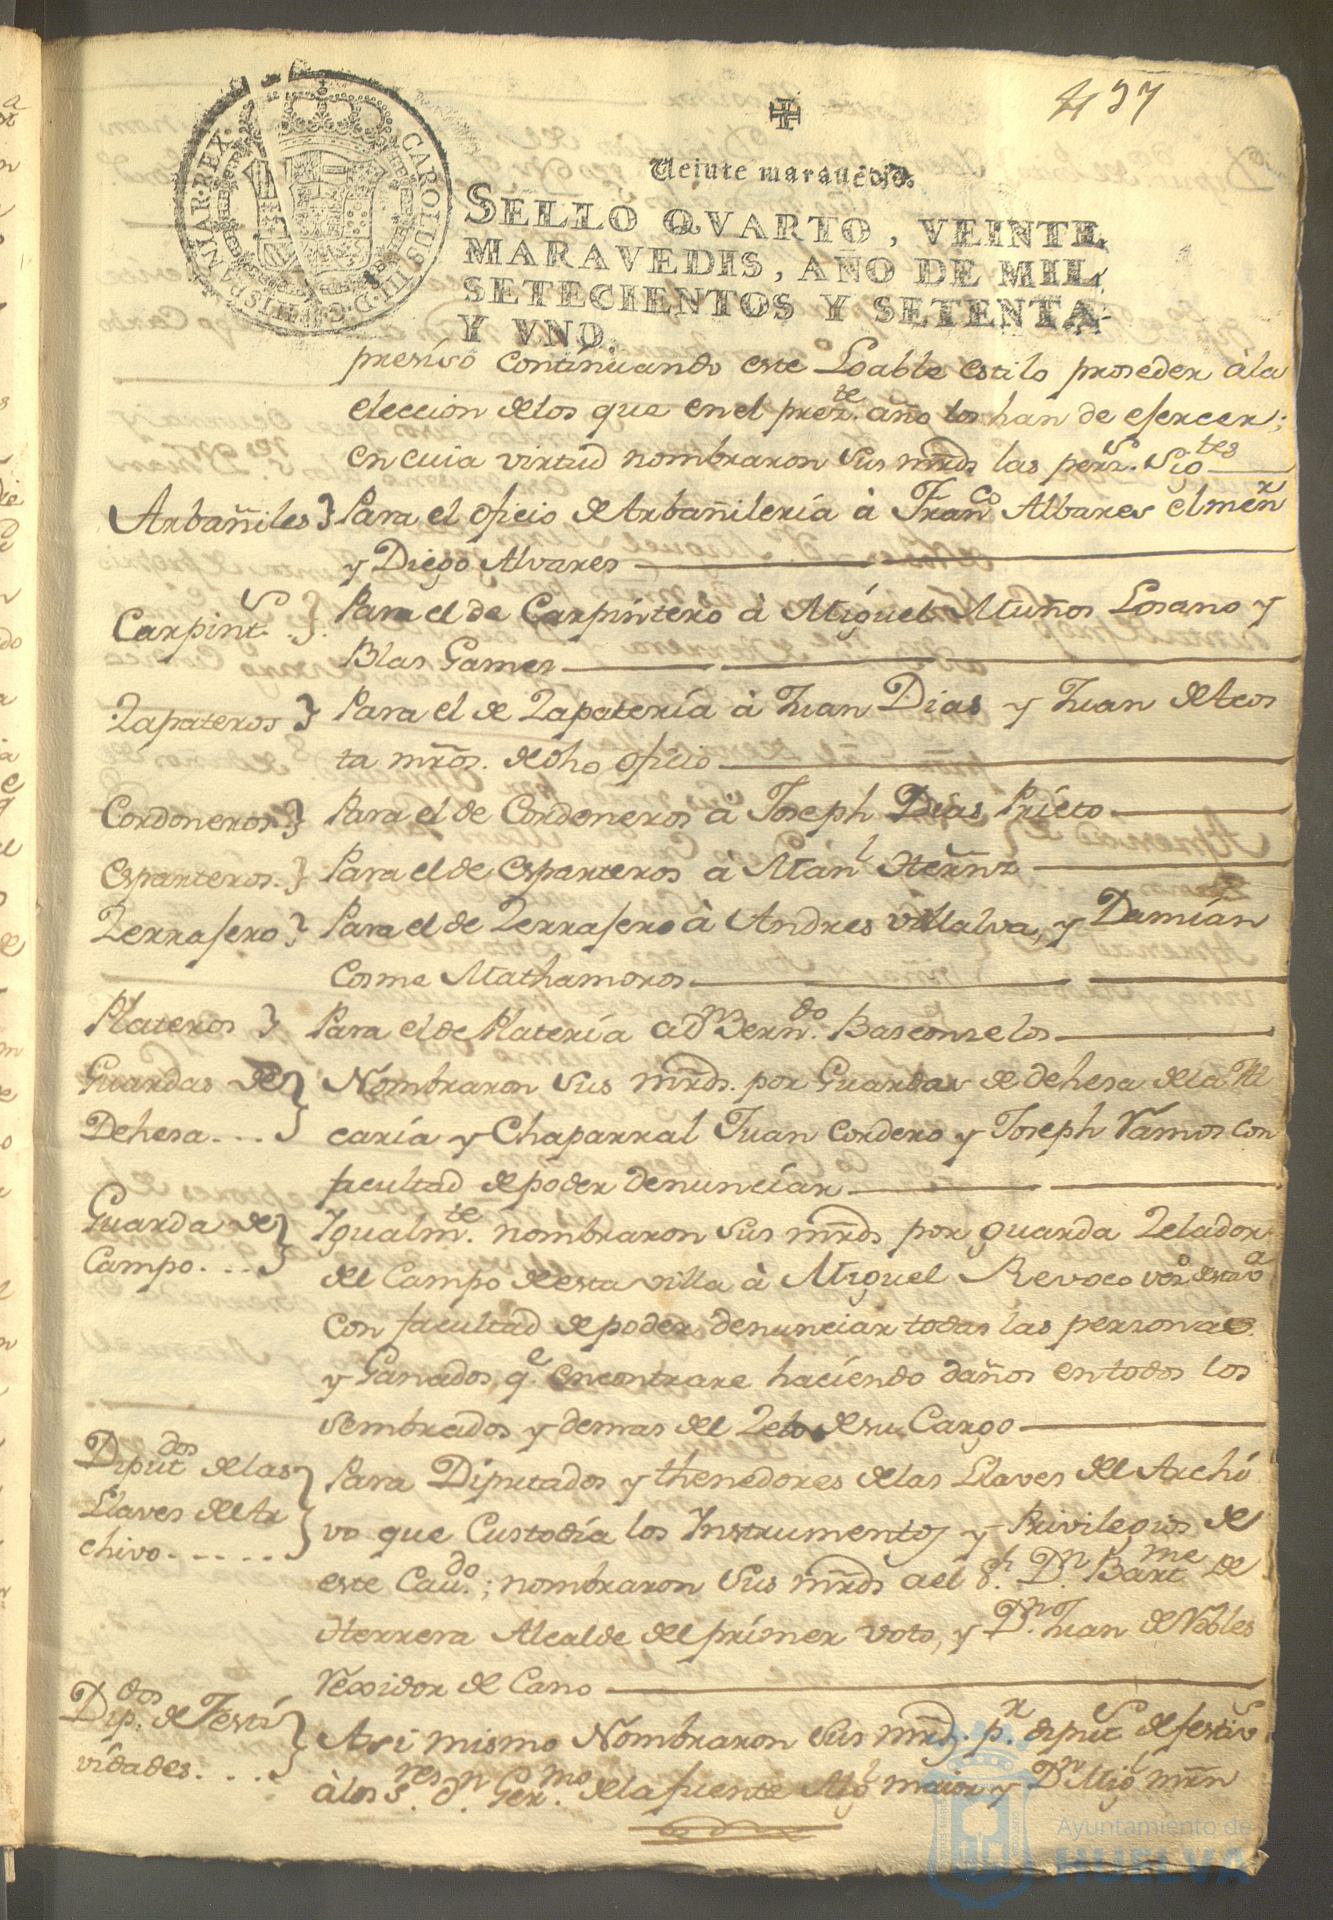 437
Veinte maravedis.
SELLO QVARTO, VEINTE
MARAVEDIS, AÑO DE MIL
SETECIENTOS Y SETENTA
Y VNO.
CAROLUS III D. G. HISPANIAR. REX.
presiso continuando este Loable estilo proseder à la
eleccion de los que en el prezte. año los han de esercer;
en cuia virtud nombraron sus mrds las pers.s sigtes
Arbañiles } Para el oficio de Arbañilería à Franco Albares el menr
y Diego Alvares
Carpints. } Para el de Carpintero à Miguel Muños Losano y
Blas Games
Zapateros } Para el de Zapatería à Juan Dias y Juan de Acos
ta mros. de dho oficio
Cordoneros } Para el de Cordoneros à Joseph Dias Prieto
Esparteros } Para el de Esparteros a Manl Hernz
Zerrasero } Para el de Zerrasero à Andres villalva, y Damián
Cosme Mathamoros
Plateros } Para el de Platería a dn Berndo. Basconselos
Guardas de } Nombraron sus mrds. por Guardas de dehesa de la Al
Dehesa... } caría y Chaparral Juan Cordero y Joseph Ramos con
facultad de poder denunciar
Guarda de } Igualmte. nombraron sus mrds por guarda Zelador
Campo... } del Campo de esta villa à Miguel Revoco vo de esta va
con facultad de poder denunciar todas las personas
y Ganados, qe. encontrare haciendo daños en todos los
sembrados y demas del Zelo de su Cargo
Diputdos de las } Para Diputados y thenedores de las Llaves del Archi
Llaves del Ar } vo que Custodía los Instrumentos y Privilegios de
chivo..... } este Caudo.; nombraron sus mrds a el Sr. Dn Bartme de
Herrera Alcalde del primer voto, y Dn. Juan de Robles
Rexidor de Cano
Dipdos. de Festi } Asi mismo Nombraron sus mrds. pr. diputs de festivs
vidades.... } à los Sres. dn. Germo. de la fuente Algl maior y Dn Migl mrn
Ayuntamiento de
HUELVA